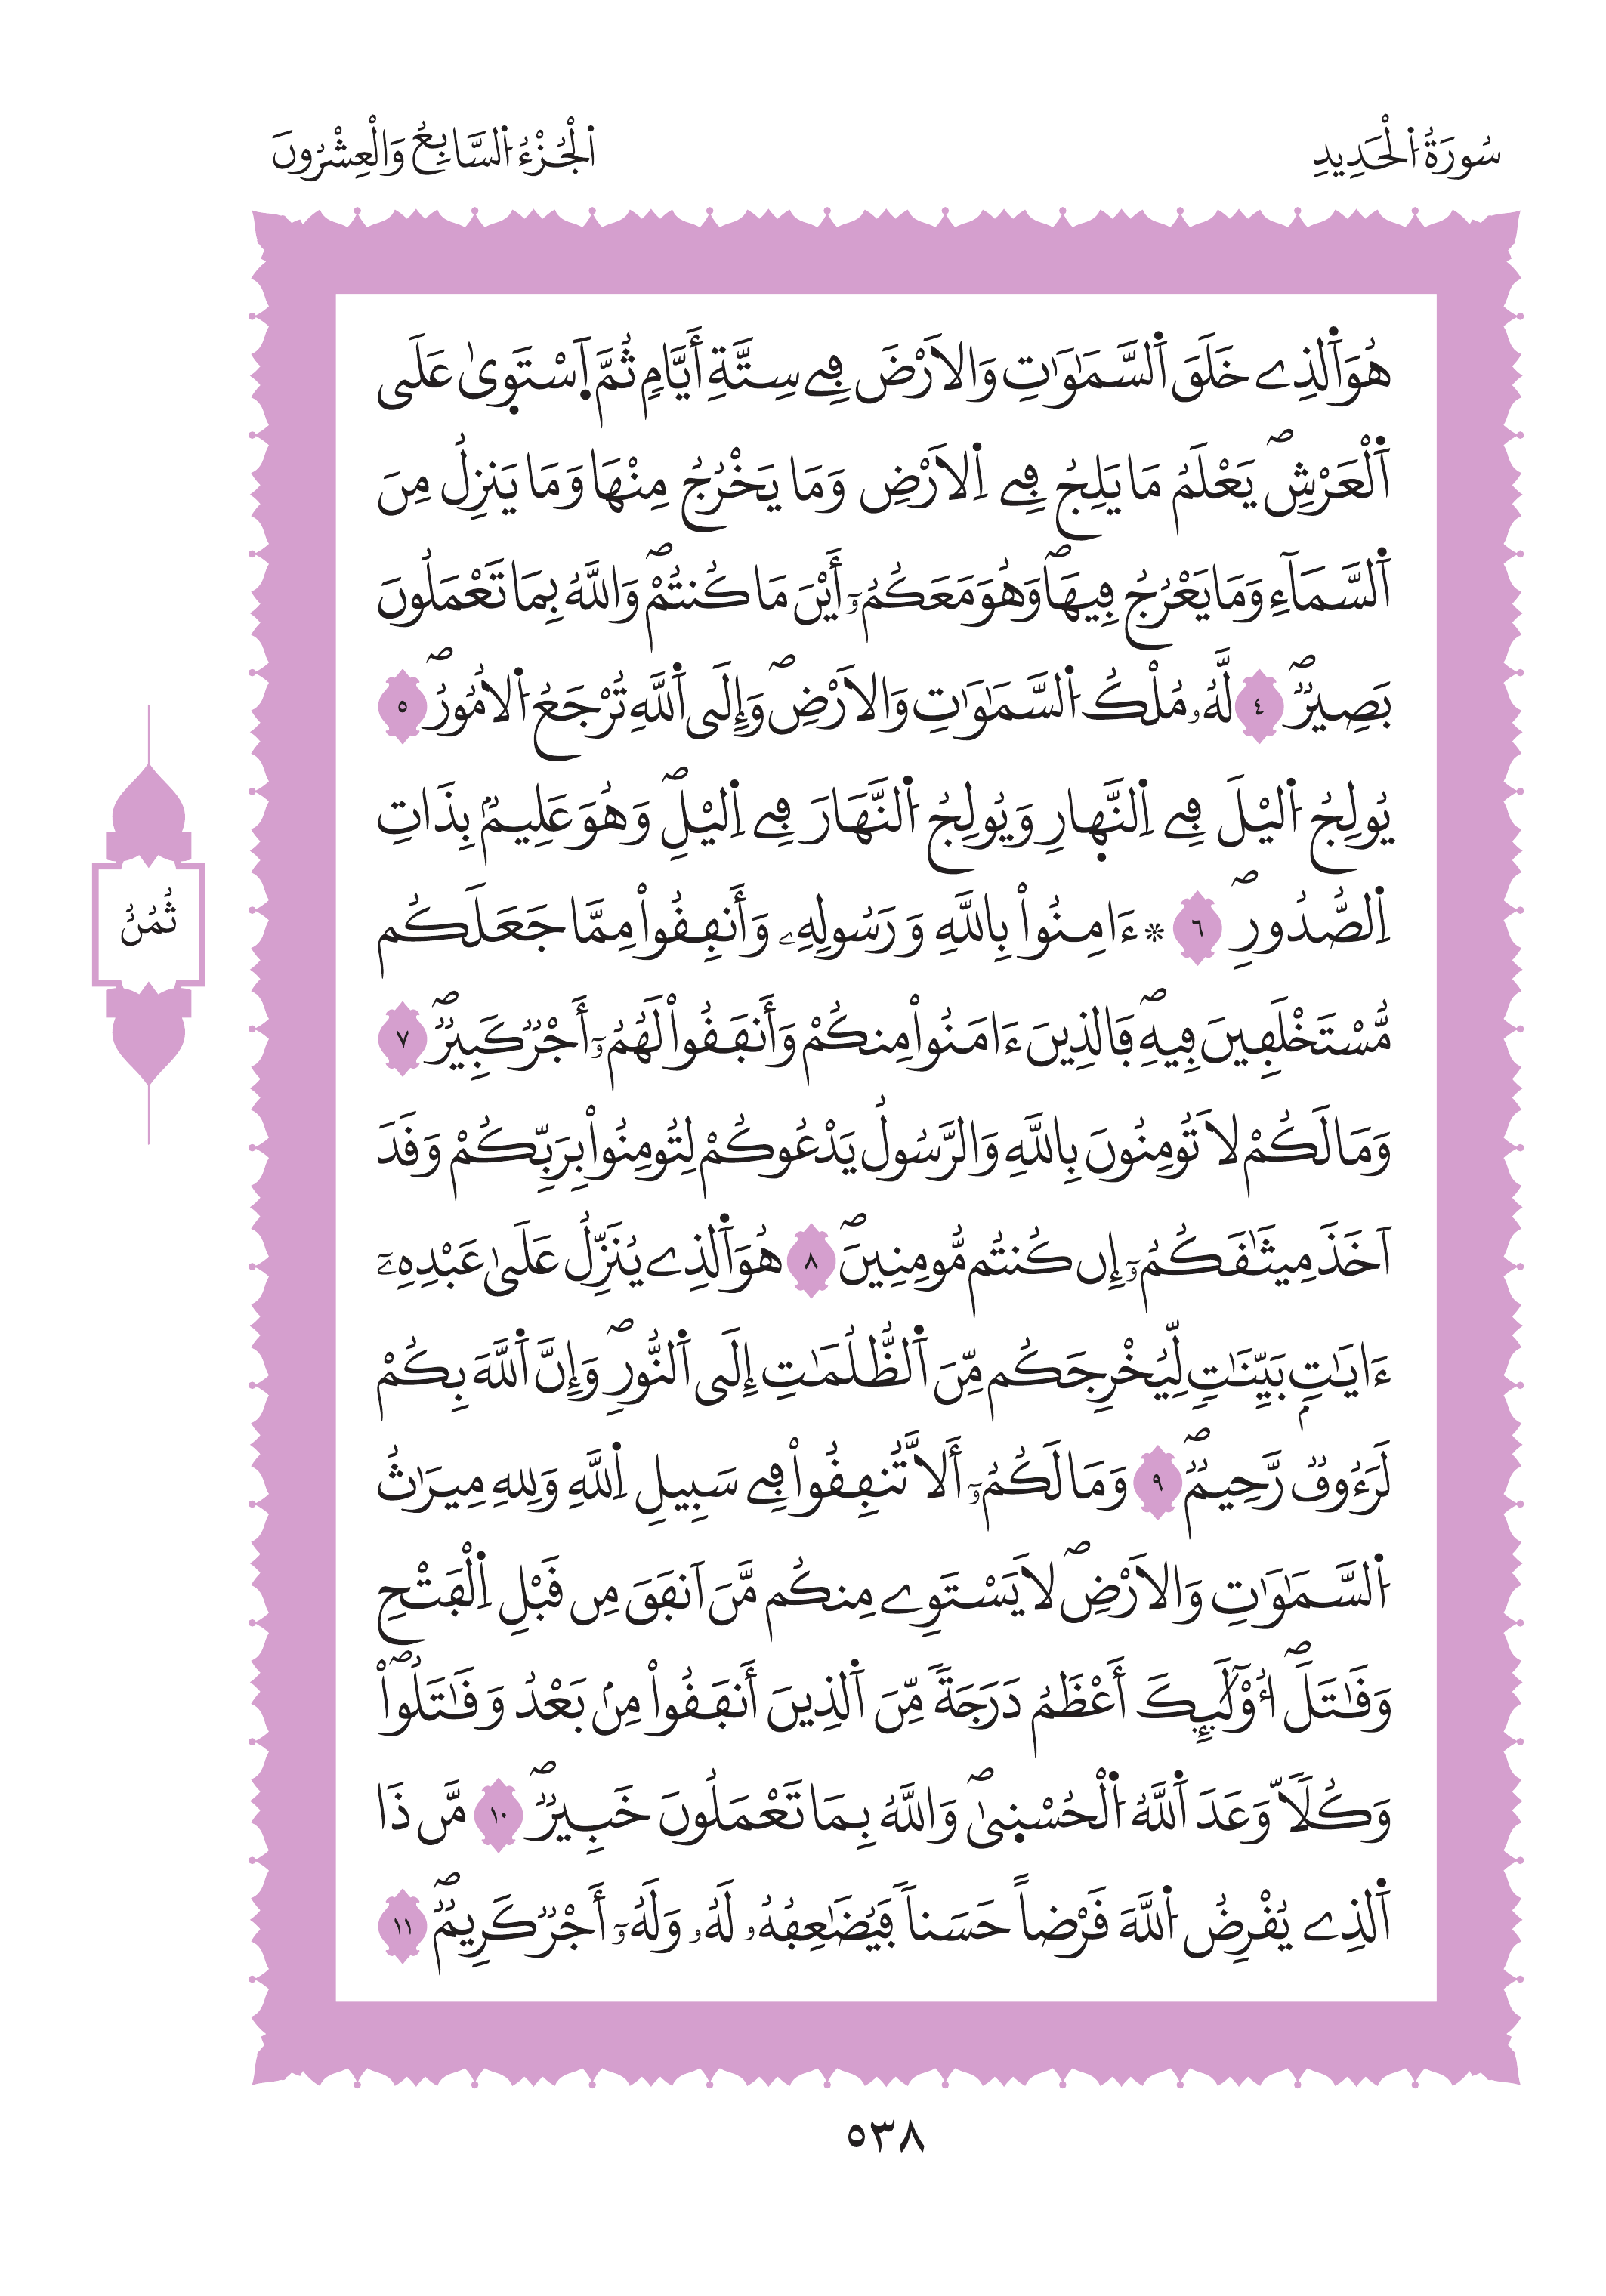 سُورَةُ اُ۬لْحَدِيدِ
اَ۬لْجُزْءُ اُ۬لسَّابِعُ وَالْعِشْرُونَ
هُوَ اَ۬لذِے خَلَقَ اَ۬لسَّمَٰوَٰتِ وَالَارْضَ فِے سِتَّةِ أَيَّامٖ ثُمَّ اَ۪سْتَو۪يٰ عَلَي
اَ۬لْعَرْشِۖ يَعْلَمُ مَا يَلِجُ فِے اِ۬لَارْضِ وَمَا يَخْرُجُ مِنْهَا وَمَا يَنزِلُ مِنَ
اَ۬لسَّمَآءِ وَمَا يَعْرُجُ فِيهَاۖ وَهُوَ مَعَكُمُۥٓ أَيْنَ مَا كُنتُمْۖ وَاللَّهُ بِمَا تَعْمَلُونَ
بَصِيرٞۖ ٤ لَّهُۥ مُلْكُ اُ۬لسَّمَٰوَٰتِ وَالَارْضِۖ وَإِلَي اَ۬للَّهِ تُرْجَعُ اُ۬لُامُورُۖ ٥
يُولِجُ اُ۬ليْلَ فِے اِ۬لنَّه۪ارِ وَيُولِجُ اُ۬لنَّهَارَ فِے اِ۬ليْلِۖ وَهُوَ عَلِيمُۢ بِذَاتِ
اِ۬لصُّدُورِۖ ٦ ۞ ءَامِنُواْ بِاللَّهِ وَرَسُولِهِۦ وَأَنفِقُواْ مِمَّا جَعَلَكُم
مُّسْتَخْلَفِينَ فِيهِۖ فَالذِينَ ءَامَنُواْ مِنكُمْ وَأَنفَقُواْ لَهُمُۥٓ أَجْرٞ كَبِيرٞۖ ٧
وَمَا لَكُمْ لَا تُومِنُونَ بِاللَّهِ وَالرَّسُولُ يَدْعُوكُمْ لِتُومِنُواْ بِرَبِّكُمْ وَقَدَ
اَخَذَ مِيثَٰقَكُمُۥٓ إِن كُنتُم مُّومِنِينَۖ ٨ هُوَ اَ۬لذِے يُنَزِّلُ عَلَيٰ عَبْدِهِۦٓ
ءَايَٰتِۢ بَيِّنَٰتٖ لِّيُخْرِجَكُم مِّنَ اَ۬لظُّلُمَٰتِ إِلَي اَ۬لنُّورِۖ وَإِنَّ اَ۬للَّهَ بِكُمْ
لَرَءُوفٞ رَّحِيمٞۖ ٩ وَمَا لَكُمُۥٓ أَلَّا تُنفِقُواْ فِے سَبِيلِ اِ۬للَّهِ وَلِلهِ مِيرَٰثُ
اُ۬لسَّمَٰوَٰتِ وَالَارْضِۖ لَا يَسْتَوِے مِنكُم مَّنَ اَنفَقَ مِن قَبْلِ اِ۬لْفَتْحِ
وَقَٰتَلَۖ أُوْلَٰٓئِكَ أَعْظَمُ دَرَجَةٗ مِّنَ اَ۬لذِينَ أَنفَقُواْ مِنۢ بَعْدُ وَقَٰتَلُواْۖ
وَكُلّاٗ وَعَدَ اَ۬للَّهُ اُ۬لْحُسْن۪يٰۖ وَاللَّهُ بِمَا تَعْمَلُونَ خَبِيرٞۖ ١٠ مَّن ذَا
اَ۬لذِے يُقْرِضُ اُ۬للَّهَ قَرْضاً حَسَناٗ فَيُضَٰعِفُهُۥ لَهُۥ وَلَهُۥٓ أَجْرٞ كَرِيمٞۖ ١١
ثُمُنُ
٥٣٨